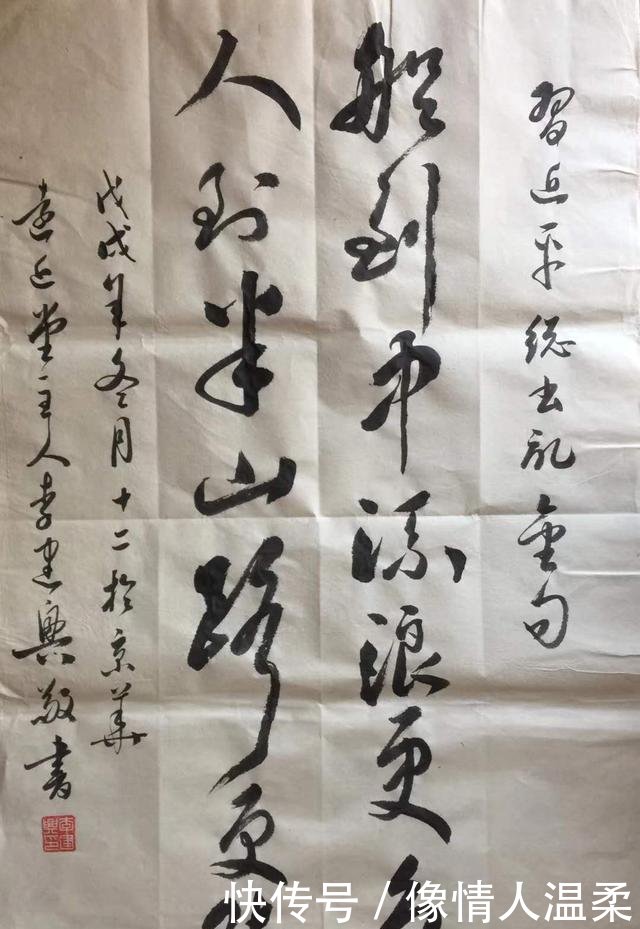 习近平総书记金句
船到中流浪更
人到半山路更
戊戌年冬月十二於京华
远近堂主人李建兴敬书
李建兴印
快传号/像情人温柔